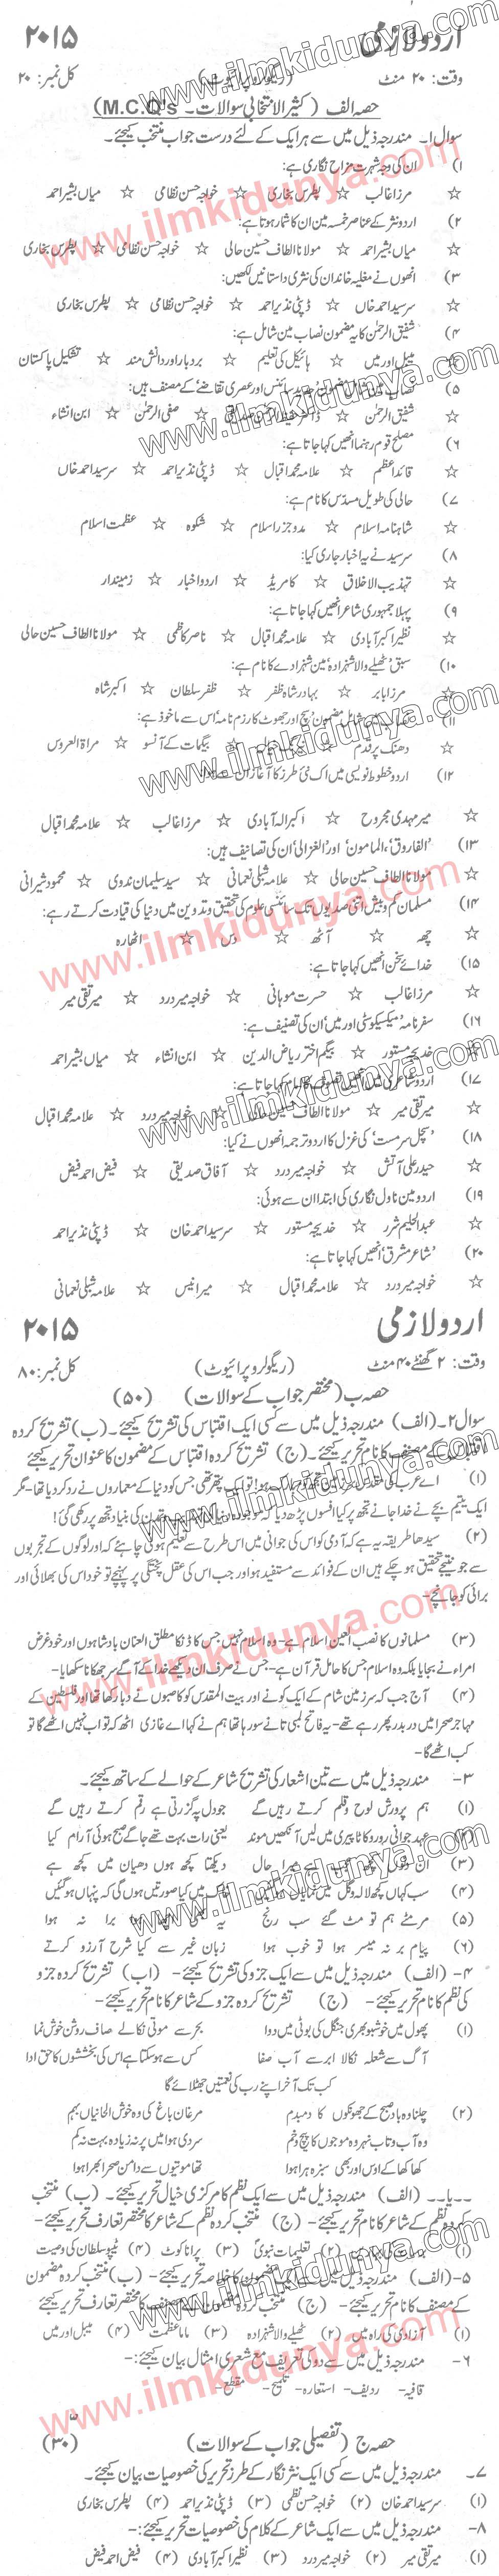 اردو لازمی ۲۰۱۵
وقت: ۲۰ منٹ (ریگولر و پرائیوٹ) کل نمبر: ۲۰
حصہ الف (کثیر الانتخابی سوالات ۔ M.C.Q's)
سوال۱۔ مندرجہ ذیل میں سے ہر ایک کے لئے درست جواب منتخب کیجئے۔
۱) ان کی وجہ شہرت مزاح نگاری ہے:
☆ مرزا غالب ☆ پطرس بخاری ☆ خواجہ حسن نظامی ☆ میاں بشیر احمد
۲) اردو نثر کے عناصر خمسہ میں ان کا شمار ہوتا ہے:
☆ میاں بشیر احمد ☆ مولانا الطاف حسین حالی ☆ خواجہ حسن نظامی ☆ پطرس بخاری
۳) انھوں نے مغلیہ خاندان کی نثری داستانیں لکھیں:
☆ سرسید احمد خاں ☆ ڈپٹی نذیر احمد ☆ خواجہ حسن نظامی ☆ پطرس بخاری
۴) شفیق الرحمٰن کا یہ مضمون نصاب مین شامل ہے:
☆ میبل اور میں ☆ ہائیکل کی تعلیم ☆ بردبار اور دانش مند ☆ تشکیل پاکستان
۵) سائنس اور عصری تقاضے کے مصنف ہیں:
☆ شفیق الرحمٰن ☆ ڈاکٹر ☆ صفی الرحمٰن ☆ ابن انشاء
۶) مصلح قوم رہنما انھیں کہا جاتا ہے:
☆ قائد اعظم ☆ علامہ محمد اقبال ☆ ڈپٹی نذیر احمد ☆ سرسید احمد خاں
۷) حالی کی طویل مسدّس کا نام ہے:
☆ شاہنامہ اسلام ☆ مدوجزر اسلام ☆ شکوہ ☆ عظمت اسلام
۸) سرسید نے یہ اخبار جاری کیا:
☆ تہذیب الاخلاق ☆ کامریڈ ☆ اردو اخبار ☆ زمیندار
۹) پہلا جمہوری شاعر انھیں کہا جاتا ہے:
☆ نظیر اکبر آبادی ☆ علامہ محمد اقبال ☆ ناصر کاظمی ☆ مولانا الطاف حسین حالی
۱۰) سبق 'ٹھیلے والا شہزادہ' مین شہزادے کا نام ہے:
☆ مرزا بابر ☆ بہادر شاہ ظفر ☆ ظفر سلطان ☆ اکبر شاہ
۱۱) شامل مضمون 'سچ اور جھوٹ کا رزم نامہ' اس سے ماخوذ ہے:
☆ دھنک پر قدم ☆ ☆ بیگمات کے آنسو ☆ مراۃ العروس
۱۲) اردو خطوط نویسی میں اک نئی طرز کا آغاز ان سے
☆ میر مہدی مجروح ☆ اکبر الہ آبادی ☆ مرزا غالب ☆ علامہ محمد اقبال
۱۳) 'الفاروق'، 'المامون' اور 'الغزالی' ان کی تصانیف ہیں:
☆ مولانا الطاف حسین حالی ☆ علامہ شبلی نعمانی ☆ سید سلیمان ندوی ☆ محمود شیرانی
۱۴) مسلمان کم و بیش اتنی صدیوں تک سائنسی علوم کی تحقیق و تدوین میں دنیا کی قیادت کرتے رہے:
☆ چھ ☆ آٹھ ☆ دس ☆ اٹھارہ
۱۵) خدائے سخن انھیں کہا جاتا ہے:
☆ مرزا غالب ☆ حسرت موہانی ☆ خواجہ میر درد ☆ میر تقی میر
۱۶) سفرنامہ 'میکسیکو سٹی اور میں' ان کی تصنیف ہے:
☆ خدیجہ مستور ☆ بیگم اختر ریاض الدین ☆ ابن انشاء ☆ میاں بشیر احمد
۱۷) اردو شاعری میں انھیں تصوف کا امام کہا جاتا ہے:
☆ میر تقی میر ☆ مولانا الطاف حسین حالی ☆ خواجہ میر درد ☆ علامہ محمد اقبال
۱۸) 'سچل سرمست' کی غزل کا اردو ترجمہ انھوں نے کیا:
☆ حیدر علی آتش ☆ خواجہ میر درد ☆ آفاق صدیقی ☆ فیض احمد فیض
۱۹) اردو مین ناول نگاری کی ابتدا ان سے ہوئی:
☆ عبد الحلیم شرر ☆ خدیجہ مستور ☆ سرسید احمد خان ☆ ڈپٹی نذیر احمد
۲۰) 'شاعر مشرق' انھیں کہا جاتا ہے:
☆ خواجہ میر درد ☆ علامہ محمد اقبال ☆ میر انیس ☆ علامہ شبلی نعمانی
اردو لازمی ۲۰۱۵
وقت: ۲ گھنٹے ۴۰ منٹ (ریگولر و پرائیوٹ) کل نمبر: ۸۰
حصہ ب (مختصر جواب کے سوالات) (۵۰)
سوال۲۔ (الف) مندرجہ ذیل میں سے کسی ایک اقتباس کی تشریح کیجئے۔ (ب) تشریح کردہ
اقتباس کے مصنف کا نام تحریر کیجئے۔ (ج) تشریح کردہ اقتباس کے مضمون کا عنوان تحریر کیجئے
(۱) اے عرب کی مقدس تو ایک پتھر تھی جس کو دنیا کے معماروں نے رد کر دیا تھا۔ مگر
ایک یتیم بچے نے خدا جانے تجھ پر کیا افسوں پڑھ دیا کہ تمدن کی بنیاد تجھ پر رکھی گئی!
(۲) سیدھا طریقہ یہ ہے کہ آدمی کو اس کی جوانی میں اس طرح سے تعلیم ہونی چاہئے کہ اور لوگوں کے تجربوں
سے جو نتیجے تحقیق ہو چکے ہیں ان کے فوائد سے مستفید ہو اور جب اس کی عقل پختگی پر پہنچے تو خود اس کی بھلائی اور
برائی کو جانچے۔
(۳) مسلمانوں کا نصب العین اسلام ہے۔ وہ اسلام نہیں جس کا ڈنکا مطلق العنان بادشاہوں اور خود غرض
امراء نے بجایا بلکہ وہ اسلام جس کا حامل قرآن ہے۔ جس نے صرف ان دیکھے خدا کے آگے سر جھکانا سکھایا۔
(۴) آج جب کہ سرزمین شام کے ایک کونے اور بیت المقدس کو غاصبوں نے دبا رکھا تھا اور فلسطین کے
مہاجر صحرا میں دربدر پھر رہے تھے۔ یہ فاتح لمبی تانے سو رہا تھا ہم نے کہا اے غازی اٹھ کہ تو اب نہیں اٹھے گا تو
کب اٹھے گا۔
۳۔ مندرجہ ذیل میں سے تین اشعار کی تشریح شاعر کے حوالے کے ساتھ کیجئے۔
(۱) ہم پرورش لوح و قلم کرتے رہیں گے جو دل پہ گزرتی ہے رقم کرتے رہیں گے
(۲) عہد جوانی رو رو کاٹا پیری میں لیں آنکھیں موند یعنی رات بہت تھے جاگے صبح ہوئی آرام کیا
(۳) ان دنوں کچھ عجب ہے میرا حال دیکھتا کچھ ہوں دھیان میں کچھ ہے
(۴) سب کہاں کچھ لالہ و گل میں نمایاں خاک میں کیا صورتیں ہوں گی کہ پنہاں ہو گئیں
(۵) مر مٹے ہم تو مٹ گئے سب رنج یہ بھی برا نہ ہوا
(۶) پیام بر نہ میسر ہوا تو خوب ہوا زبان غیر سے کیا شرح آرزو کرتے
۴۔ (الف) مندرجہ ذیل میں سے ایک جزو کی تشریح کیجئے۔ (اب) تشریح کردہ جزو
کی نظم کا نام تحریر کیجئے۔ (ج) تشریح کردہ جزو کے شاعر کا نام تحریر کیجئے۔
(۱) پھول میں خوشبو بھری جنگل کی بوٹی میں دوا بحر سے موتی نکالے صاف روشن خوش نما
آگ سے شعلہ نکالا ابر سے آب صفا کس سے ہو سکتا ہے اس کی بخششوں کا حق ادا
کب تک آخر اپنے رب کی نعمتیں جھٹلائے گا
(۲) چلنا وہ باد صبح کے جھونکوں کا دمبدم مرغان باغ کی وہ خوش الحانیاں بہم
وہ آب و تاب نہر وہ موجوں کا پیچ و خم سردی ہوا میں پر نہ زیادہ بہت نہ کم
کھا کھا کے اوس اور بھی سبزہ ہرا ہوا تھا موتیوں سے دامن صحرا بھرا ہوا
۔۔یا۔۔ (الف) مندرجہ ذیل میں سے ایک نظم کا مرکزی خیال تحریر کیجئے۔ (ب) منتخب
کردہ نظم کے شاعر کا نام تحریر کیجئے۔ (ج) منتخب کردہ نظم کے شاعر کا مختصر تعارف تحریر کیجئے۔
(۱) (۲) تعلیمات نبویؐ (۳) پرانا کوٹ (۴) ٹیپو سلطان کی وصیت
۵۔ (الف) مندرجہ ذیل میں سے ایک مضمون کا خلاصہ تحریر کیجئے۔ (ب) منتخب کردہ مضمون
کے مصنف کا نام تحریر کیجئے۔ (ج) منتخب کردہ مضمون کے مصنف کا مختصر تعارف تحریر کیجئے
(۱) آزادی کی راہ میں (۲) ٹھیلے والا شہزادہ (۳) ماما عظمت (۴) میبل اور میں
۶۔ مندرجہ ذیل میں سے دو کی تعریف مع شعری امثال بیان کیجئے:۔
قافیہ۔ ردیف۔ استعارہ۔ تلمیح۔ مقطع۔
حصہ ج (تفصیلی جواب کے سوالات) (۳۰)
۷۔ مندرجہ ذیل میں سے کسی ایک نثر نگار کے طرز تحریر کی خصوصیات بیان کیجئے۔
(۱) سرسید احمد خان (۲) خواجہ حسن نظمی (۳) ڈپٹی نذیر احمد (۴) پطرس بخاری
۸۔ مندرجہ ذیل میں سے ایک شاعر کے کلام کی خصوصیات تحریر کیجئے:
(۱) میر تقی میر (۲) خواجہ میر درد (۳) نظیر اکبر آبادی (۴) فیض احمد فیض
www.ilmkidunya.com